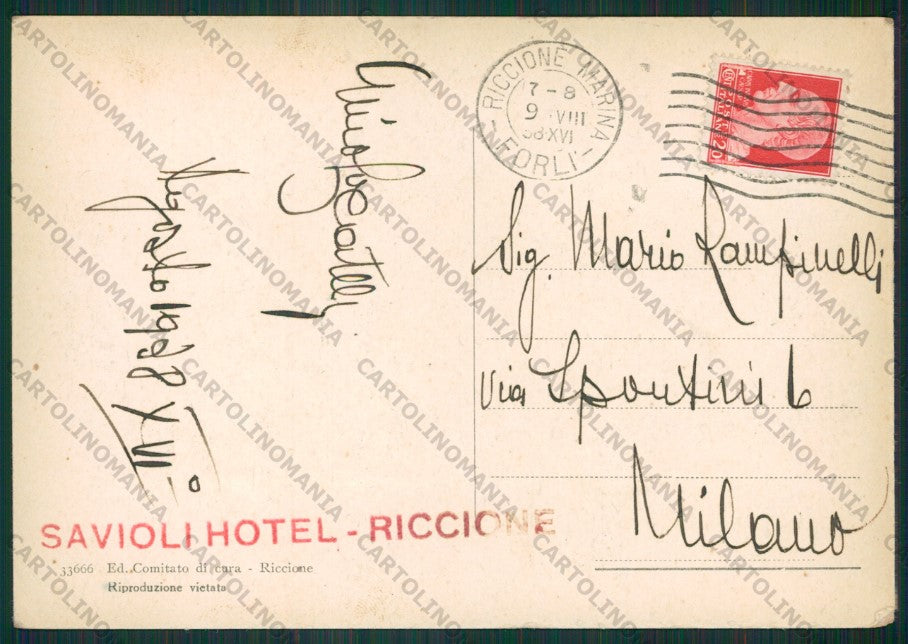 RICCIONE MARINA
7-8
9.VIII
38.XVI
-FORLI'-
20
Sig. Mario Rampinelli
Via Spontini 6
Milano
Agosto 1938 XVI°
SAVIOLI HOTEL - RICCIONE
33666 Ed. Comitato di cura - Riccione
Riproduzione vietata
CARTOLINOMANIA